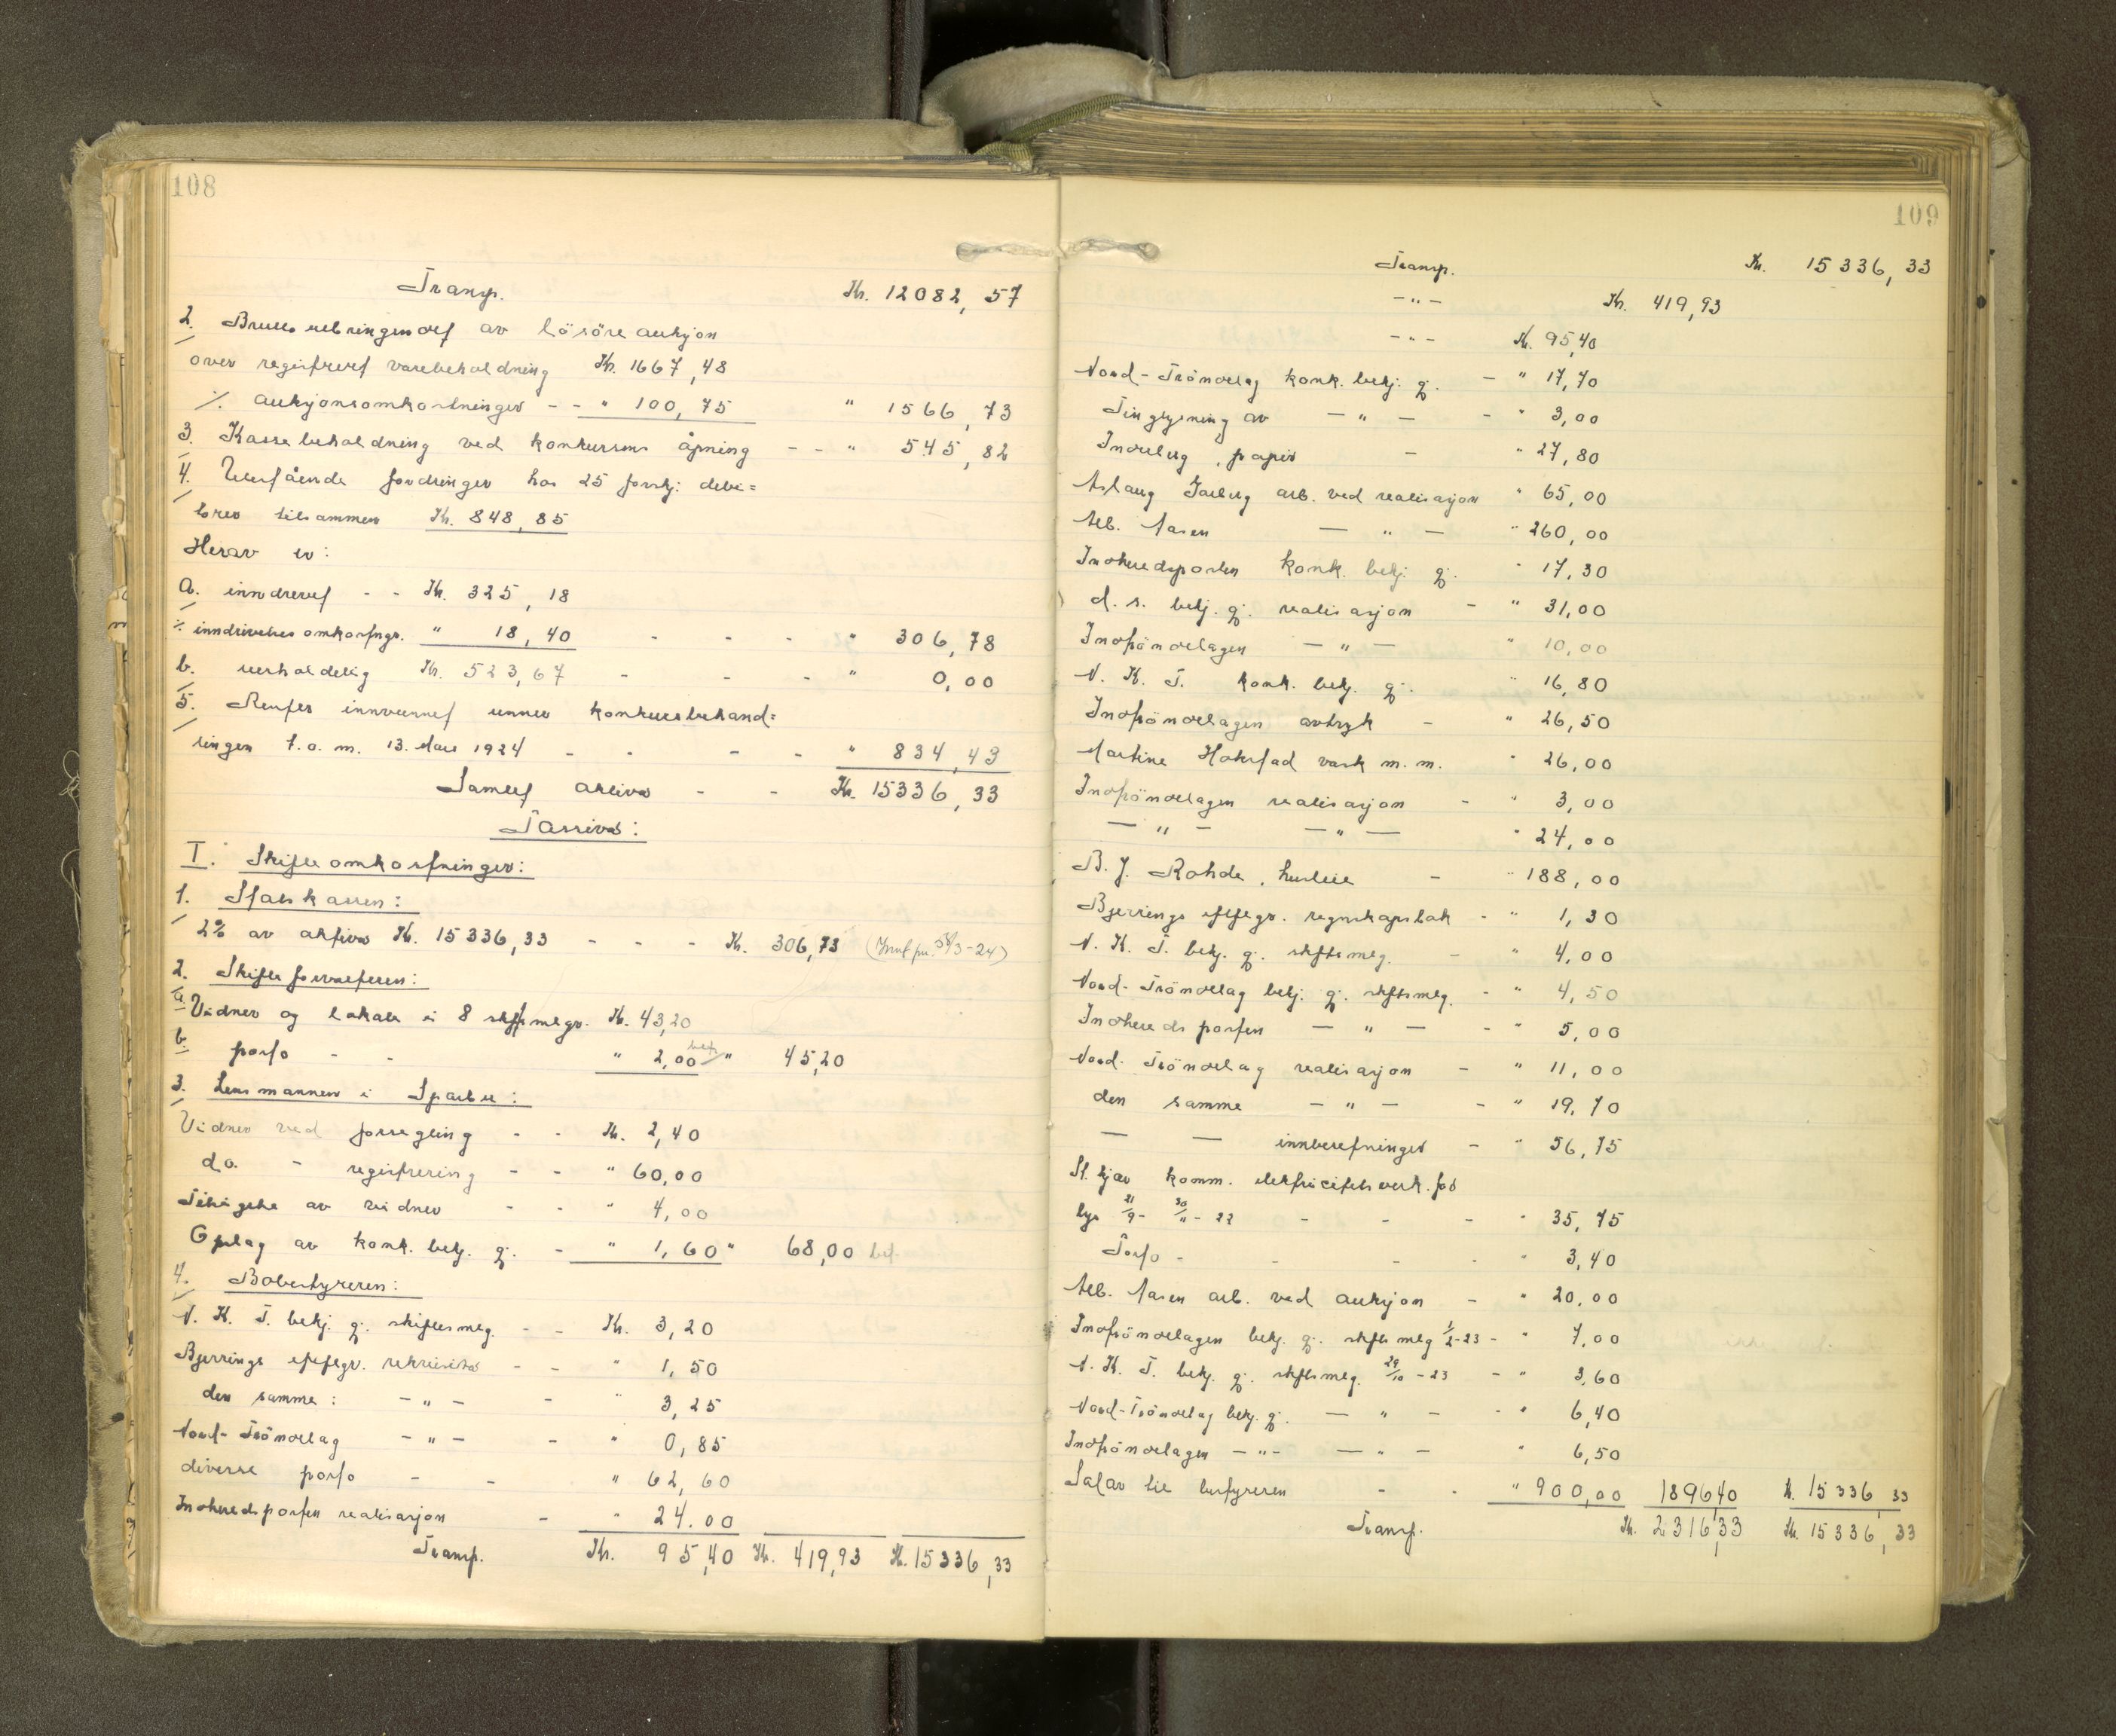 108
Transp. Kr. 12082,57
2. Brutto utbringende av lösöre aukjon
over registrert varebeholdning Kr. 1667,48
÷ aukjonsomkostninger - - " 100,75 " 1566,73
3. Kassebeholdning ved konkursens åpning - - " 545,82
4. Utestående fordringer hos 25 forskj. debi=
torer tilsammen Kr. 848,85
Herav er:
a. inndrevet - - Kr. 325,18
÷ inndrivelsesomkostngr. " 18,40 - - - " 306,78
b. uerholdelig Kr. 523,67 - - - " 0,00
5. Renter innvunnet under konkursbehand=
lingen t.o.m. 13. Mars 1924 - - - - " 834,43
Samlet aktiva - - Kr. 15336,33
Passiva:
I. Skifteomkostninger:
1. Statskassen:
2% av aktiva Kr. 15336,33 - - - Kr. 306,73
2. Skifteforvalteren:
a. Vidner og lokale i 8 skftsmlgr. Kr. 43,20
b. porto - - " 2,00 bet. " 45,20
3. Lensmannen i Sparbu:
Vidner ved forsegling - - Kr. 2,40
do. - registrering - - " 60,00
Tilsigelse av vidner - - " 4,00
Oplag av konk. bekj. gj. - " 1,60 " 68,00 bet.
4. Bobestyreren:
N. K. T. bekj. gj. skiftesmlg. - - Kr. 3,20
Bjerrings efteflgr. rekvisita - - " 1,50
den samme: - " - - " 3,25
Nord-Tröndelag - " - - " 0,85
diverse porto - - " 62,60
Inherredsposten realisasjon - " 24.00
Transp. Kr. 95,40 Kr. 419,93 Kr. 15336,33
109
Transp. Kr. 15336,33
- " - Kr. 419,93
- " - Kr. 95,40
Nord-Tröndelag konk. bekj. gj. - " 17,70
Tinglysning av - " - - " 3,00
Inderberg, papir - " 27,80
Aslaug Jarberg arb. ved realisasjon " 65,00
Alb. Aasen - " - " 260,00
Inherredsposten konk. bekj. gj. " 17,30
d. s. bekj. gj. realisasjon - " 31,00
Indtröndelagen - " - " 10,00
N. K. T. konk. bekj. gj. " 16,80
Indtröndelagen avtryk - " 26,50
Martine Hokstad vask m. m. " 26,00
Indtröndelagen realisasjon - " 3,00
- " - - " - " 24,00
B. J. Rohde, husleie - " 188,00
Bjerrings efteflgr. regnskapsbok - " 1,30
N. K. T. bekj. gj. skftsmlg. - " 4,00
Nord-Tröndelag bekj. gj. skftsmlg. - " 4,50
Inherredsposten - " - - " 5,00
Nord-Tröndelag realisasjon - " 11,00
den samme - " - - " 19,70
- - innberetninger - " 56,75
St. kjær komm. elektricitetsverk. for
lys 21/9 - 30/11 - 22 - - - " 35,75
Porto - - - - " 3,40
Alb. Aasen arb. ved aukjon - " 20,00
Indtröndelagen bekj. gj. skfts mlg 1/2-23 - " 7,00
N. K. T. bekj. gj. skftsmlg. 29/10 - 23 - " 3,60
Nord-Tröndelag bekj. gj. - " - - " 6,40
Indtröndelagen - " - - " - " 6,50
Salær til bestyreren - - " 900,00 1896,40 Kr. 15336,33
Transp. Kr. 2316,33 Kr. 15336,33